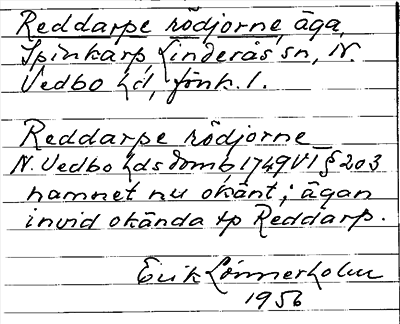 Reddarpe rödjorne, äga,
Spinkarp, Linderås sn, N.
Vedbo hd, Jönk. l.
Reddarpe rödjorne
N. Vedbo hds domb 1749 VI § 203
namnet nu okänt; ägan
invid okända tp Reddarp.
Erik Lönnerholm
1956